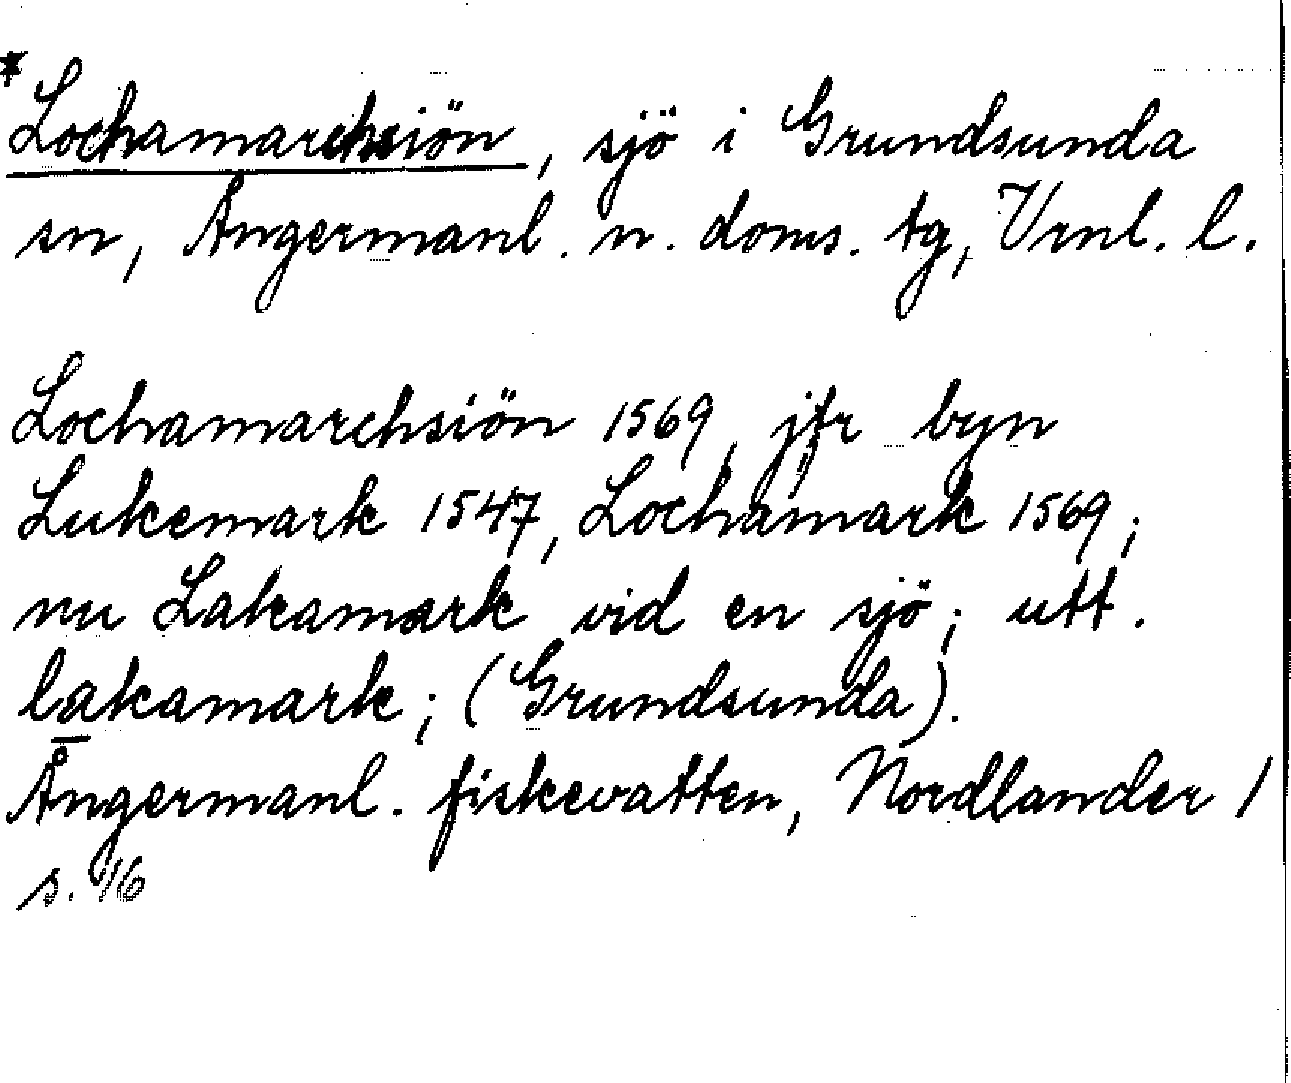 *Lochamarchsiön, sjö i Grundsunda
sn, Ångermanl. n. doms. tg, Vrnl. l.
Lochamarchsiön 1569, jfr byn
Lukemark 1547, Lochamark 1569;
nu Lakamark vid en sjö; utt.
lakamark; (Grundsunda).
Ångermanl. fiskevatten, Nordlander 1
s. 16